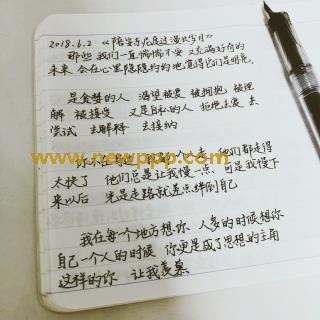 2018.6.2 《陪安东尼度过漫长岁月》
那些 我们一直惴惴不安 又充满好奇的
未来 会在心里隐隐约约地觉得它们是明亮
是贪婪的人 渴望被爱 被拥抱 被理
解 被接受 又是自私的人 拒绝去爱 去
尝试 去解释 去接纳
www.newppp.com
他们都走得
太快了 他们总是让我慢一点 可是我慢下
来以后 光是走路就差点绊倒自己
我在每一个地方想你 人多的时候想你
自己一个人的时候 你更是成了思想的主角
这样的你 让我羡慕